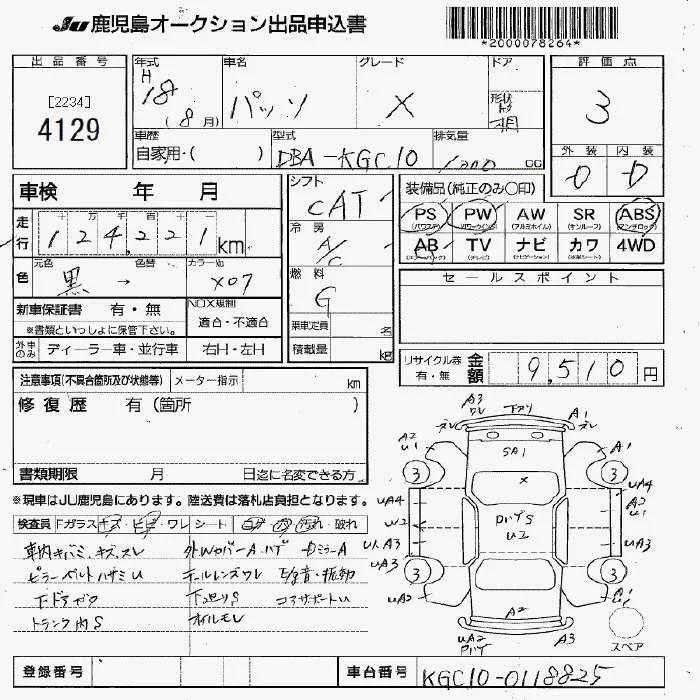 JU 鹿児島オークション出品申込書
*2000078264*
出品番号
[2234]
4129
年式
H
18
(8月)
車名
パッソ
グレード
X
ドア
形状
評価点
3
車歴
自家用・( )
型式
DBA-KGC10
排気量
1300
CC
外装
内装
D D
車検 年 月
シフト
CAT
装備品(純正のみ○印)
走行
十 万 千 百 十
124,221 km
冷房
A/C
PS PW AW SR ABS
(パワステ) (パワーウインド) (アルミホイル) (サンルーフ) (アンチロック)
AB TV ナビ カワ 4WD
(エアーバック) (テレビ) (ナビゲーション) (本革シート)
色
元色 色替 カラーNo
黒 → X07
燃料
G
セールスポイント
新車保証書 有・無
※書類といっしょに保管下さい。
NOX規制
適合・不適合
乗車定員 名
外車のみ
ディーラー車・並行車
右H・左H
積載量 kg
リサイクル券
有・無
金額
9,510円
注意事項(不具合箇所及び状態等)
メーター指示 km
修復歴 有(箇所 )
書類期限 月 日迄に名変できる方
※現車はJU鹿児島にあります。陸送費は落札店負担となります。
検査員
ドガラス キズ・ヒビ・ワレ
シート
汚れ・破れ
車内キバミ、キズ、スレ
外Wカバー A、ハゲ
DミラーA
ピラーベルトハサミU
テールレンズワレ
下ドアガク
下廻りS
コアサポートU
トランク内S
オイルモレ
A3
ワレ
A1
A2
U1
A1
SA1
X
3
3
UA4
UA4
A2
U1
U2
DハゲS
U2
U1 A3
UA3
UA3
3
3
UA2
A2
UA2
Dハゲ
A3
スペア
登録番号
車台番号
KGC10-0118825